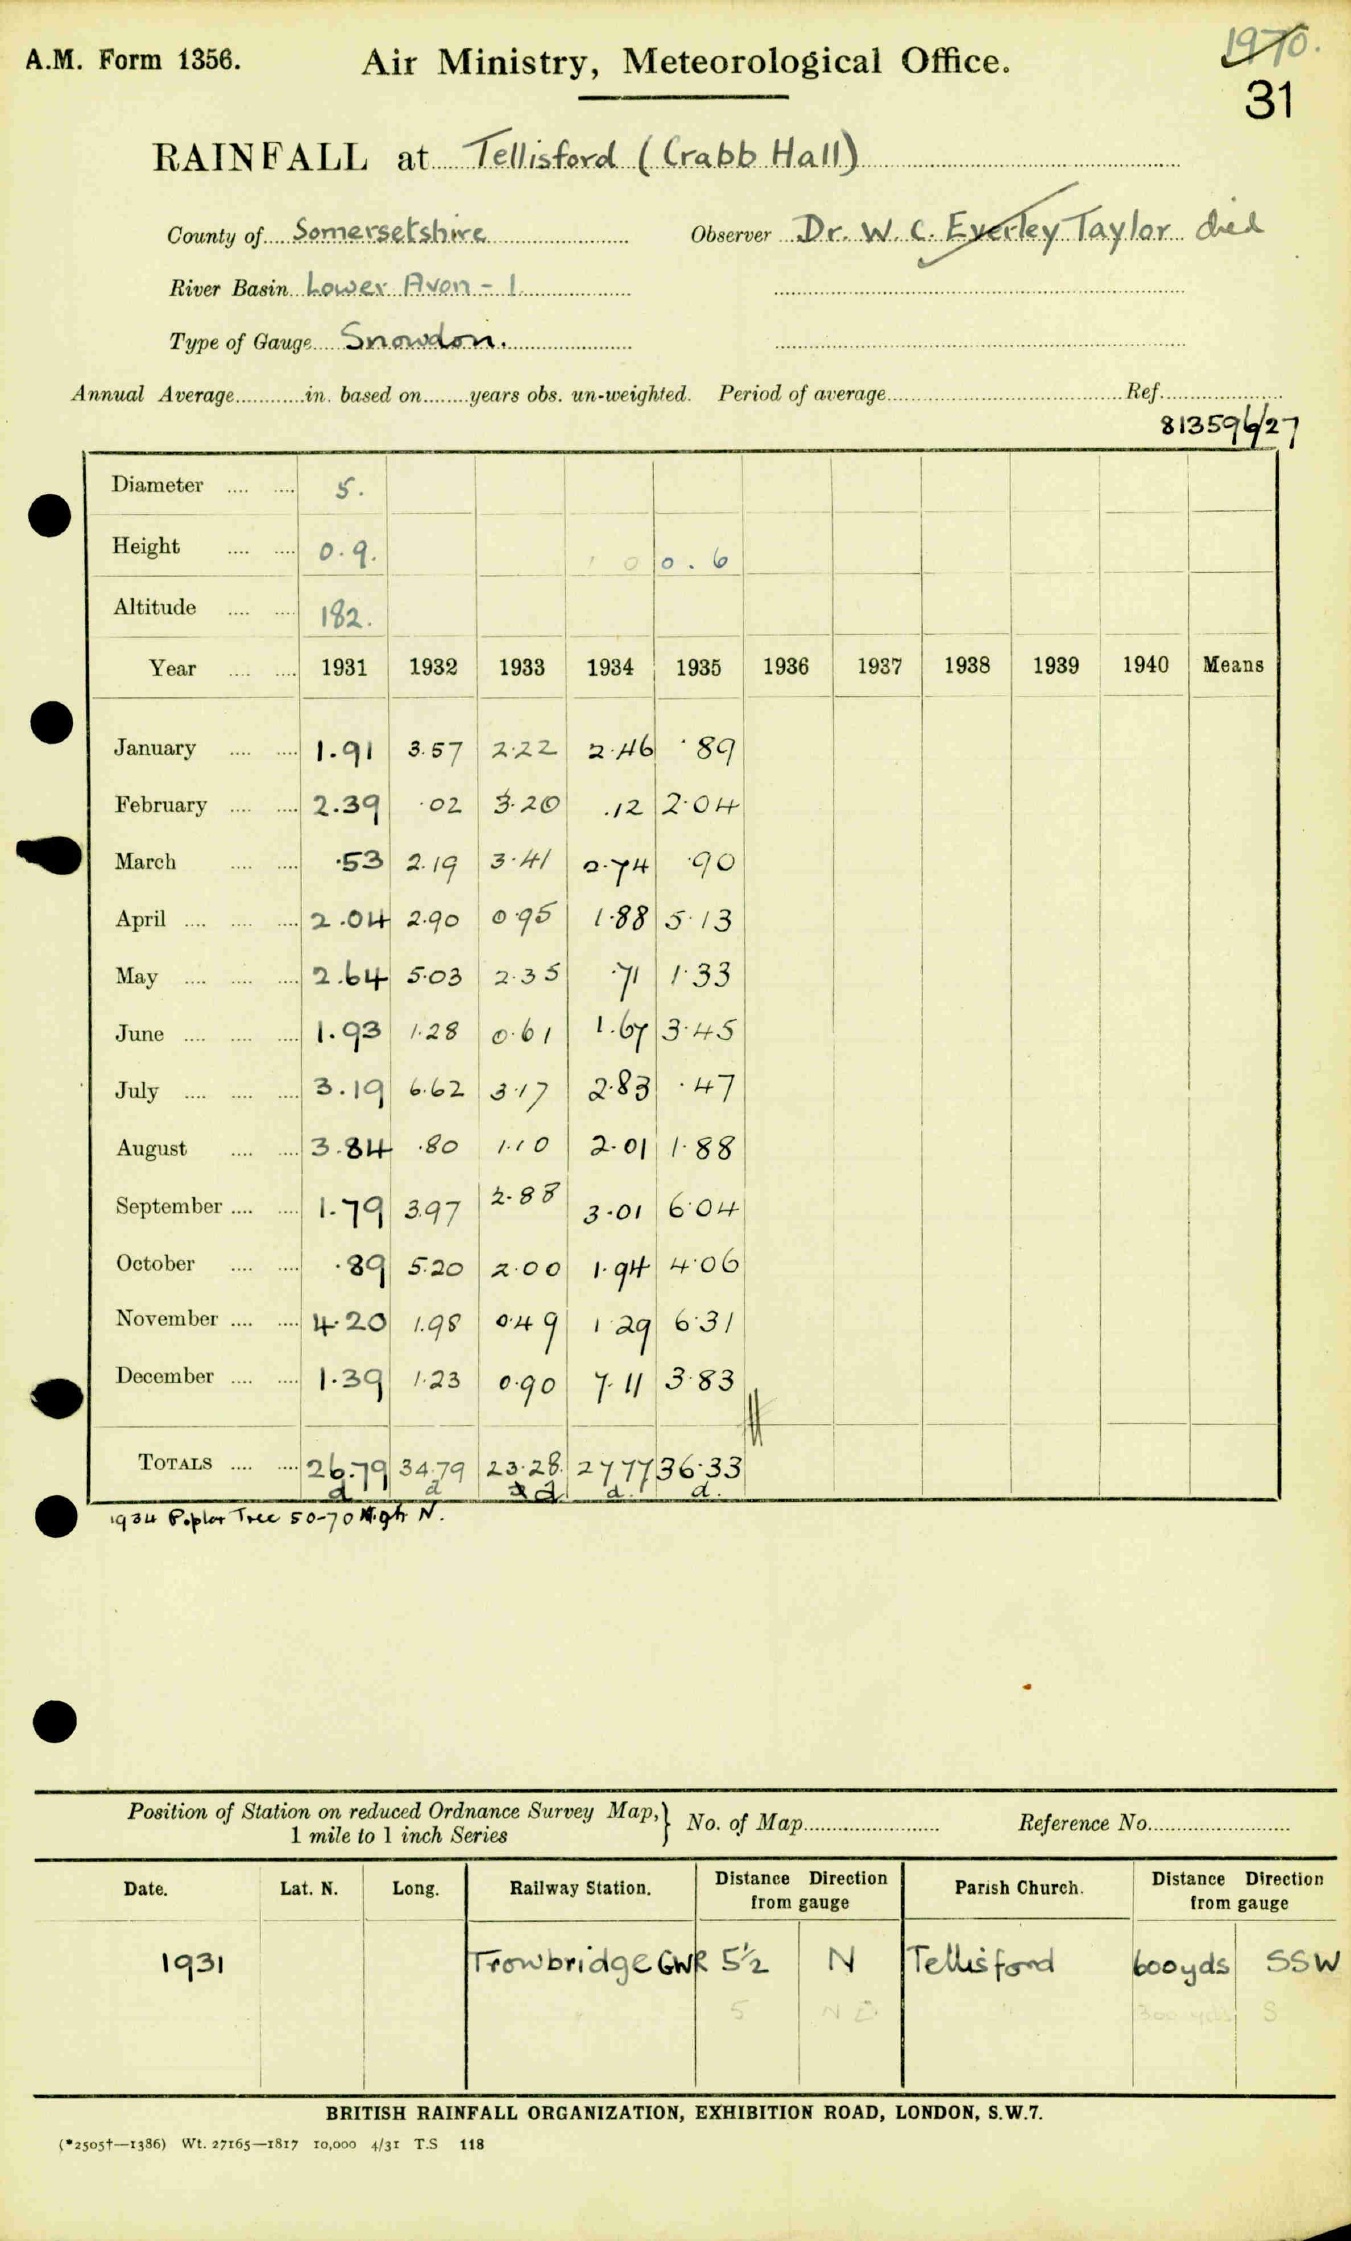 1970.
A.M. Form 1356. Air Ministry, Meteorological Office.
31
RAINFALL at Tellisford (Crabb Hall)
County of Somersetshire Observer Dr. W. C. Everley Taylor died
River Basin Lower Avon - 1
Type of Gauge Snowdon.
Annual Average............in. based on........years obs. un-weighted. Period of average.......... Ref..........
813596/27
Diameter .... .... 5.
Height .... .... 0.9. 0.6
Altitude .... .... 182.
Year .... .... 1931 1932 1933 1934 1935 1936 1937 1938 1939 1940 Means
January .... .... 1.91 3.57 2.22 2.46 .89
February .... .... 2.39 .02 3.20 .12 2.04
March .... .... .53 2.19 3.41 2.74 .90
April .... .... .... 2.04 2.90 0.95 1.88 5.13
May .... .... .... 2.64 5.03 2.35 .71 1.33
June .... .... .... 1.93 1.28 0.61 1.67 3.45
July .... .... .... 3.19 6.62 3.17 2.83 .47
August .... .... 3.84 .80 1.10 2.01 1.88
September .... .... 1.79 3.97 2.88 3.01 6.04
October .... .... .89 5.20 2.00 1.94 4.06
November .... .... 4.20 1.98 0.49 1.29 6.31
December .... .... 1.39 1.23 0.90 7.11 3.83
TOTALS .... .... 26.79 34.79 23.28 27.77 36.33
d d d d. d.
1934 Poplar Tree 50-70 High N.
Position of Station on reduced Ordnance Survey Map,} No. of Map.......... Reference No..........
1 mile to 1 inch Series
Date. Lat. N. Long. Railway Station. Distance Direction from gauge Parish Church. Distance Direction from gauge
1931 Trowbridge GWR 5½ N Tellisford 600yds SSW
5 NE " 300 yds S
BRITISH RAINFALL ORGANIZATION, EXHIBITION ROAD, LONDON, S.W.7.
(*2505†—1386) Wt. 27165—1817 10,000 4/31 T.S 118